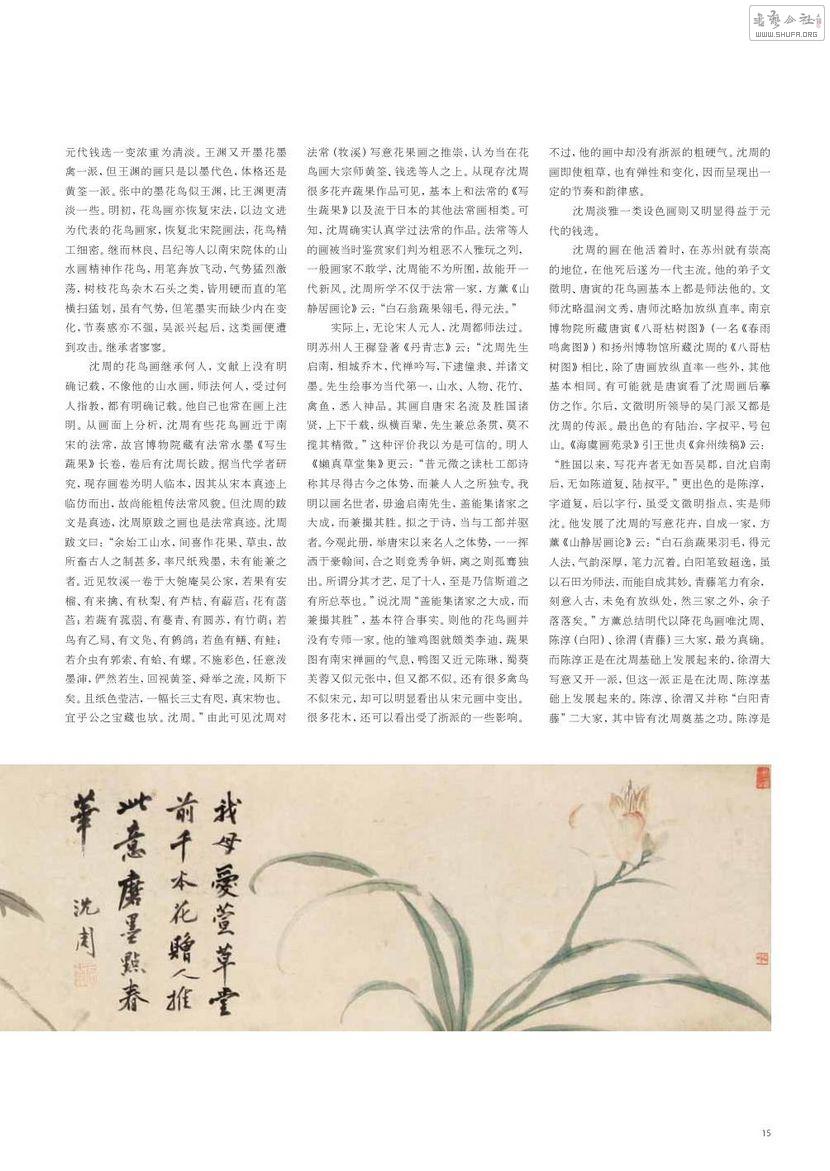 书艺公社
WWW.SHUFA.ORG
元代钱选一变浓重为清淡。王渊又开墨花墨
禽一派，但王渊的画只是以墨代色，体格还是
黄筌一派。张中的墨花鸟似王渊，比王渊更清
淡一些。明初，花鸟画亦恢复宋法，以边文进
为代表的花鸟画家，恢复北宋院画法，花鸟精
工细密。继而林良、吕纪等人以南宋院体的山
水画精神作花鸟，用笔奔放飞动，气势猛烈激
荡，树枝花鸟杂木石头之类，皆用硬而直的笔
横扫猛划，虽有气势，但笔墨实而缺少内在变
化，节奏感亦不强，吴派兴起后，这类画便遭
到攻击。继承者寥寥。
沈周的花鸟画继承何人，文献上没有明
确记载，不像他的山水画，师法何人，受过何
人指教，都有明确记载。他自己也常在画上注
明。从画面上分析，沈周有些花鸟画近于南
宋的法常，故宫博物院藏有法常水墨《写生
蔬果》长卷，卷后有沈周长跋。据当代学者研
究，现存画卷为明人临本，因其从宋本真迹上
临仿而出，故尚能粗传法常风貌。但沈周的跋
文是真迹，沈周原跋之画也是法常真迹。沈周
跋文曰：“余始工山水，间喜作花果、草虫，故
所畜古人之制甚多，率尺纸残墨，未有能兼之
者。近见牧溪一卷于大匏庵吴公家，若果有安
榴、有来擒、有秋梨、有芦桔、有薜荙；花有菡
萏；若蔬有菰蒻、有蔓青、有圆苏，有竹萌；若
鸟有乙舄、有文凫、有鹩鸽；若鱼有鳝、有鲑；
若介虫有郭索、有蛤、有螺。不施彩色，任意泼
墨渖，俨然若生，回视黄筌、舜举之流，风斯下
矣。且纸色莹洁，一幅长三丈有咫，真宋物也。
宜乎公之宝藏也欤。沈周。”由此可见沈周对
法常（牧溪）写意花果画之推崇，认为当在花
鸟画大宗师黄筌、钱选等人之上。从现存沈周
很多花卉蔬果作品可见，基本上和法常的《写
生蔬果》以及流于日本的其他法常画相类。可
知，沈周确实认真学过法常的作品。法常等人
的画被当时鉴赏家们判为粗恶不入雅玩之列，
一般画家不敢学，沈周能不为所囿，故能开一
代新风。沈周所学不仅于法常一家，方薰《山
静居画论》云：“白石翁蔬果翎毛，得元法。”
实际上，无论宋人元人，沈周都师法过。
明苏州人王穉登著《丹青志》云：“沈周先生
启南，相城乔木，代禅吟写，下逮僮隶、并诸文
墨。先生绘事为当代第一，山水、人物、花竹、
禽鱼，悉入神品。其画自唐宋名流及胜国诸
贤，上下千载，纵横百辈，先生兼总条贯，莫不
揽其精微。”这种评价我以为是可信的。明人
《嬾真草堂集》更云：“昔元微之读杜工部诗
称其尽得古今之体势，而兼人人之所独专。我
明以画名世者，毋逾启南先生，盖能集诸家之
大成，而兼撮其胜。拟之于诗，当与工部并驱
者。今观此册，举唐宋以来名人之体势，一一挥
洒于豪翰间，合之则竞秀争妍，离之则孤骞独
出。所谓分其才艺，足了十人，至是乃信斯道之
有所总萃也。”说沈周“盖能集诸家之大成，而
兼撮其胜”，基本符合事实。则他的花鸟画并
没有专师一家。他的雏鸡图就颇类李迪，蔬果
图有南宋禅画的气息，鸭图又近元陈琳，蜀葵
芙蓉又似元张中，但又都不似。还有很多禽鸟
不似宋元，却可以明显看出从宋元画中变出。
很多花木，还可以看出受了浙派的一些影响。
不过，他的画中却没有浙派的粗硬气。沈周的
画即使粗草，也有弹性和变化，因而呈现出一
定的节奏和韵律感。
沈周淡雅一类设色画则又明显得益于元
代的钱选。
沈周的画在他活着时，在苏州就有崇高
的地位，在他死后遂为一代主流。他的弟子文
徵明、唐寅的花鸟画基本上都是师法他的。文
师沈略温润文秀，唐师沈略加放纵直率。南京
博物院所藏唐寅《八哥枯树图》（一名《春雨
鸣禽图》）和扬州博物馆所藏沈周的《八哥枯
树图》相比，除了唐画放纵直率一些外，其他
基本相同。有可能就是唐寅看了沈周画后摹
仿之作。尔后，文徵明所领导的吴门派又都是
沈周的传派。最出色的有陆治，字叔平，号包
山。《海虞画苑录》引王世贞《弇州续稿》云：
“胜国以来，写花卉者无如吾吴郡，自沈启南
后，无如陈道复、陆叔平。”更出色的是陈淳，
字道复，后以字行，虽受文徵明指点，实是师
沈。他发展了沈周的写意花卉，自成一家，方
薰《山静居画论》云：“白石翁蔬果羽毛，得元
人法，气韵深厚，笔力沉着。白阳笔致超逸，虽
以石田为师法，而能自成其妙。青藤笔力有余，
刻意入古，未免有放纵处，然三家之外，余子
落落矣。”方薰总结明代以降花鸟画唯沈周、
陈淳（白阳）、徐渭（青藤）三大家，最为真确。
而陈淳正是在沈周基础上发展起来的，徐渭大
写意又开一派，但这一派正是在沈周、陈淳基
础上发展起来的。陈淳、徐渭又并称“白阳青
藤”二大家，其中皆有沈周奠基之功。陈淳是
我母爱萱草堂
前千本花赠人推
此意磨墨點春
華
沈周
15